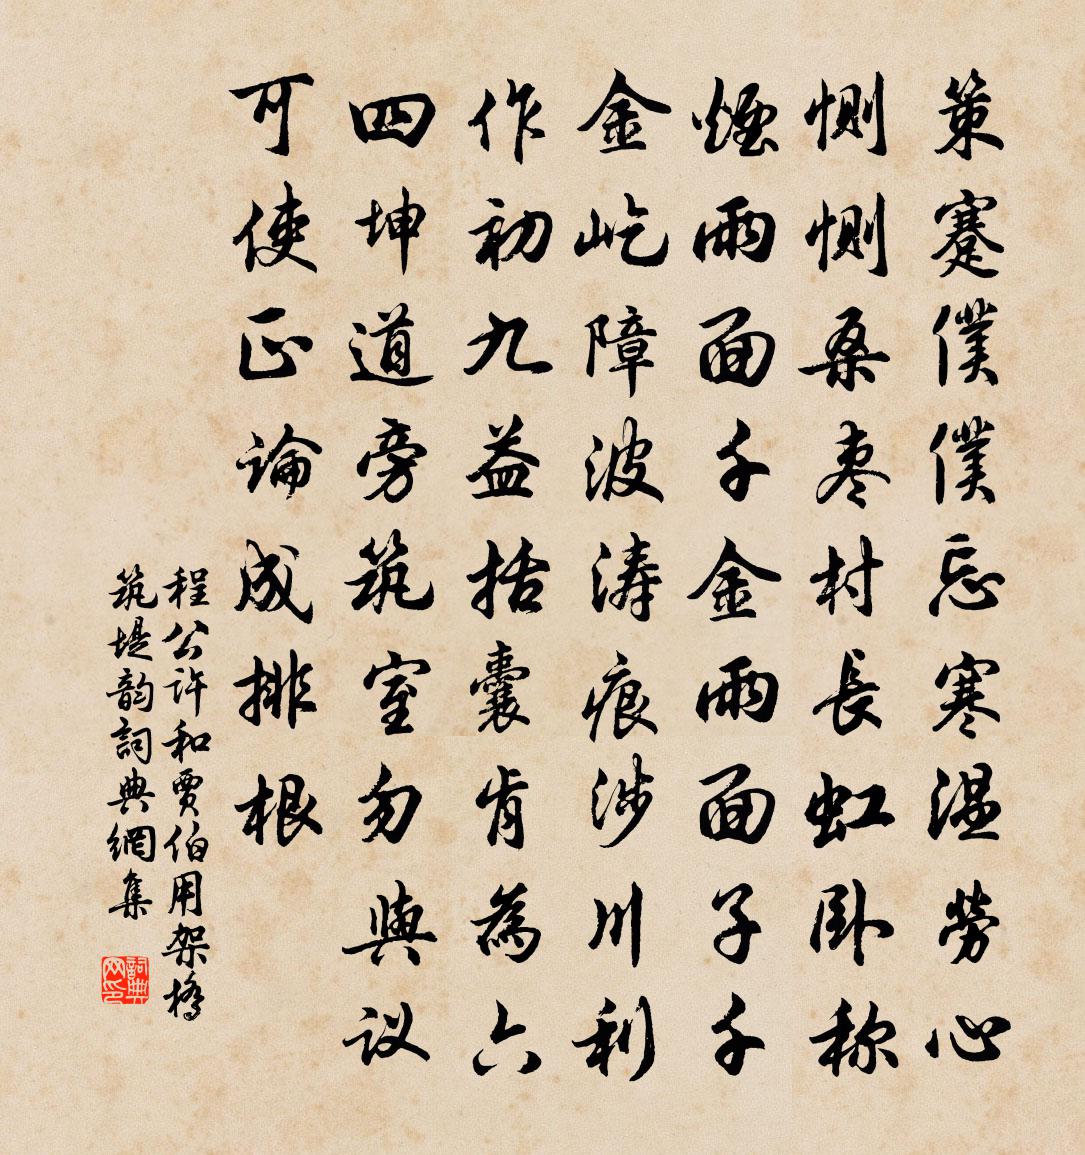 策蹇僕僕忘寒温勞心
惻惻桑棗村長虹卧称
煙雨面千金雨面子千
金屹障波濤痕涉川利
作初九益括囊肯為六
四坤道旁筑室勿與议
可使正論成排根
程公许和賈伯用架橋
筑堤韵詞典網集
詞典网印